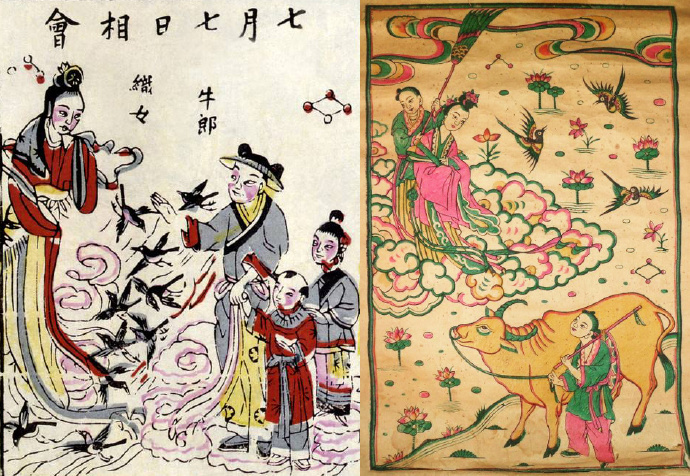 七月七日相會
牛郎
織女